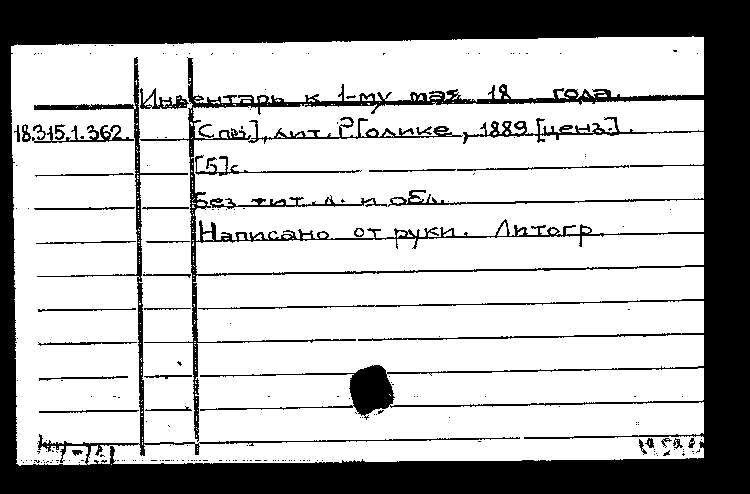 Инвентарь к 1-му мая 18 года.
18.315.1.362. [Спб.], лит. Р. Голике, 1889 [ценз.].
[5] с.
Без тит. л. и обл.
Написано от руки. Литогр.